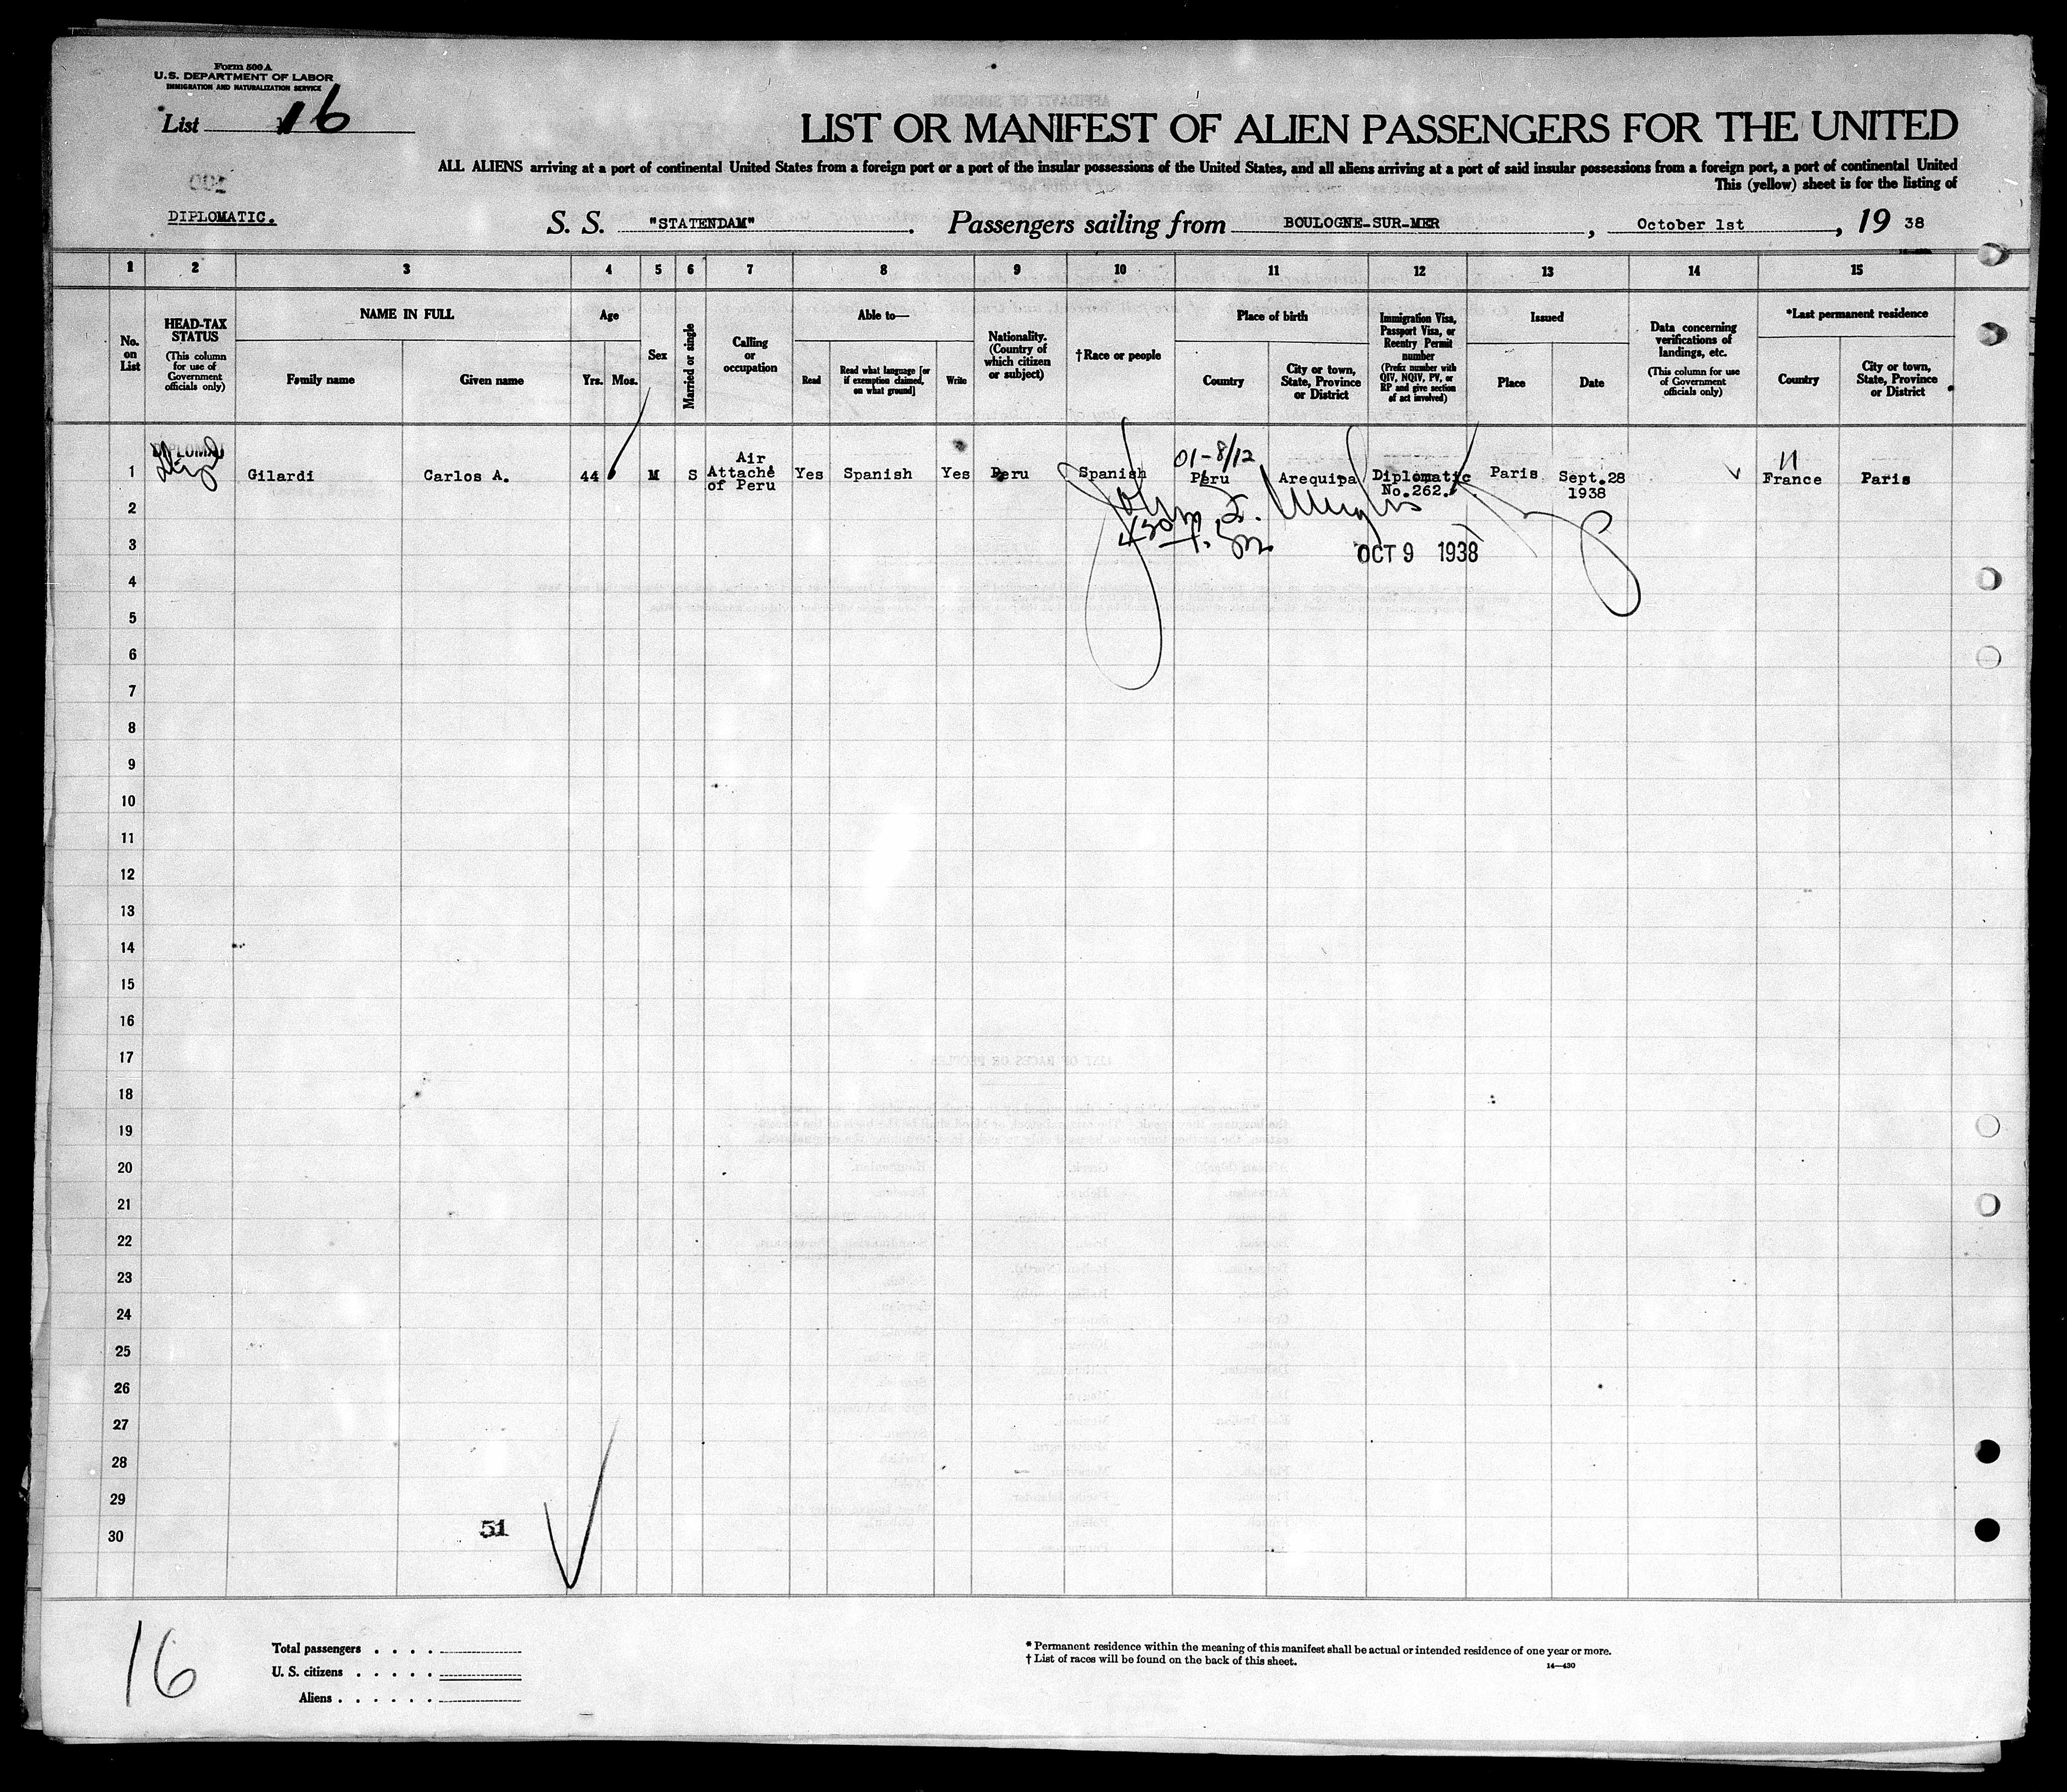 Form 500 A
U.S. DEPARTMENT OF LABOR
IMMIGRATION AND NATURALIZATION SERVICE
List 16
LIST OR MANIFEST OF ALIEN PASSENGERS FOR THE UNITED
ALL ALIENS arriving at a port of continental United States from a foreign port or a port of the insular possessions of the United States, and all aliens arriving at a port of said insular possessions from a foreign port, a port of continental United
This (yellow) sheet is for the listing of
DIPLOMATIC.
S. S. "STATENDAM". Passengers sailing from BOULOGNE-SUR-MER, October 1st, 19 38
1 2 3 4 5 6 7 8 9 10 11 12 13 14 15
No. on List
HEAD-TAX STATUS
(This column for use of Government officials only)
NAME IN FULL
Family name
Given name
Age
Yrs. Mos.
Sex
Married or single
Calling or occupation
Able to—
Read
Read what language [or if exemption claimed, on what ground]
Write
Nationality. (Country of which citizen or subject)
†Race or people
Place of birth
Country
City or town, State, Province or District
Immigration Visa, Passport Visa, or Reentry Permit number
(Prefix number with QIV, NQIV, PV, or RP and give section of act involved)
Issued
Place
Date
Data concerning verifications of landings, etc.
(This column for use of Government officials only)
*Last permanent residence
Country
City or town, State, Province or District
DIPLOMAT
01-8/12
11
1 Gilardi Carlos A. 44 M S Air Attaché of Peru Yes Spanish Yes Peru Spanish Peru Arequipa Diplomatic No.262. Paris Sept.28 1938 France Paris
2
3
OCT 9 1938
4
5
6
7
8
9
10
11
12
13
14
15
16
17
18
19
20
21
22
23
24
25
26
27
28
29
30
51
16
Total passengers . . . .
U. S. citizens . . . . .
Aliens . . . . . .
* Permanent residence within the meaning of this manifest shall be actual or intended residence of one year or more.
† List of races will be found on the back of this sheet.
14—430